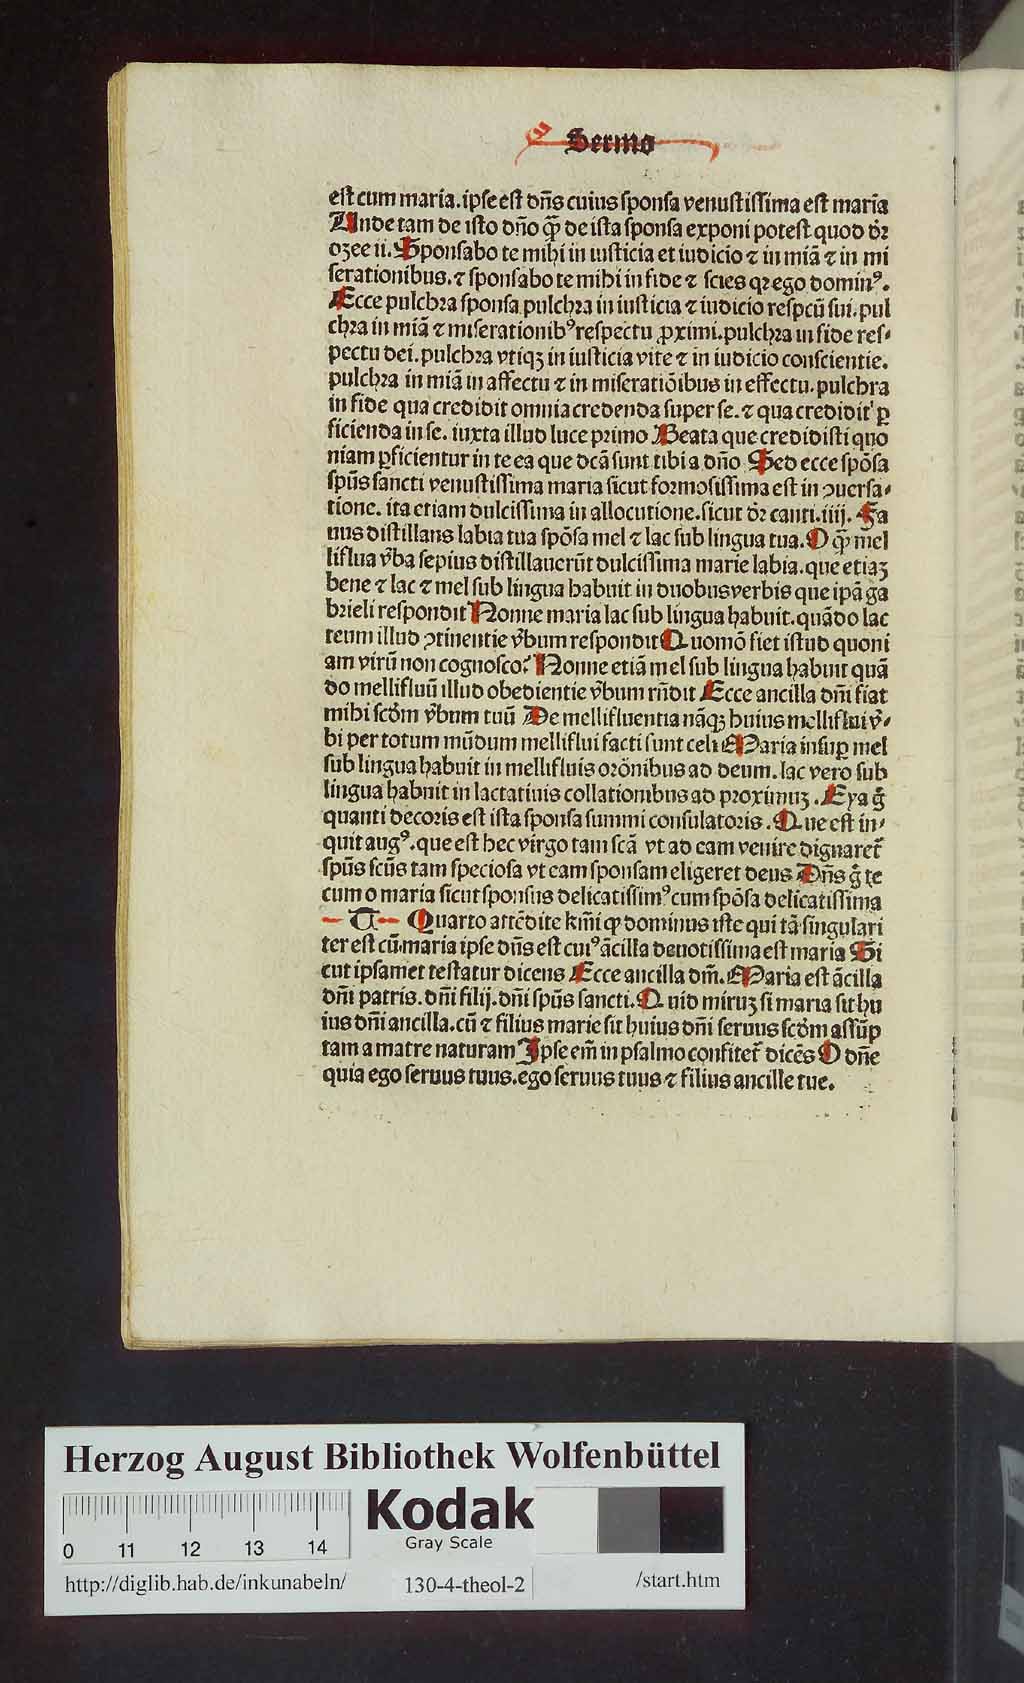 Sermo
est cum maria. ipse est dñs cuius sponsa venustissima est maria
Unde tam de isto dño q̃ de ista sponsa exponi potest quod dr̃
ozee ii. Sponsabo te mihi in iusticia et iudicio ⁊ in miã ⁊ in mi
serationibus. ⁊ sponsabo te mihi in fide ⁊ scies qꝛ ego dominꝰ.
Ecce pulchra sponsa pulchra in iusticia ⁊ iudicio respcũ sui. pul
chra in miã ⁊ miserationibꝰ respectu ꝓximi. pulchra in fide res⸗
pectu dei. pulchra vtiqꝫ in iusticia vite ⁊ in iudicio conscientie.
pulchra in miã in affectu ⁊ in miseratiõibus in effectu. pulchra
in fide qua credidit omnia credenda super se. ⁊ qua credidit ꝑ
ficienda in se. iuxta illud luce primo Beata que credidisti quo
niam ꝑficientur in te ea que dcã sunt tibi a dño Sed ecce spõsa
spũs sancti venustissima maria sicut formosissima est in ꝯuersa⸗
tione. ita etiam dulcissima in allocutione. sicut dr̃ canti. iiij. Fa
uus distillans labia tua spõsa mel ⁊ lac sub lingua tua. O q̃ mel
liflua v̆ba sepius distillauerũt dulcissima marie labia. que etiaꝫ
bene ⁊ lac ⁊ mel sub lingua habuit in duobus verbis que ipã ga
brieli respondit Nonne maria lac sub lingua habuit. quãdo lac
teum illud ꝯtinentie v̆bum respondit Quomõ fiet istud quoni
am virũ non cognosco? Nonne etiã mel sub lingua habuit quã
do mellifluũ illud obedientie v̆bum rñdit Ecce ancilla dñi fiat
mihi scd̃m v̆bum tuũ De mellifluentia nãqꝫ huius melliflui v̆⸗
bi per totum mũdum melliflui facti sunt celi Maria insuꝑ mel
sub lingua habuit in mellifluis orõnibus ad deum. lac vero sub
lingua habuit in lactatiuis collationibus ad proximuꝫ. Eya g̃
quanti decoris est ista sponsa summi consulatoris. Que est in⸗
quit augꝰ. que est hec virgo tam scã vt ad eam venire dignaret̃
spũs scũs tam speciosa vt eam sponsam eligeret deus Dñs g̃ te
cum o maria sicut sponsus delicatissimꝰ cum spõsa delicatissima
U Quarto attẽdite km̃i ꝙ dominus iste qui tã singulari
ter est cũ maria ipse dñs est cuiꝰ ãcilla deuotissima est maria Si
cut ipsamet testatur dicens Ecce ancilla dñi. Maria est ãcilla
dñi patris. dñi filij. dñi spũs sancti. Quid miruꝫ si maria sit hu
ius dñi ancilla. cũ ⁊ filius marie sit huius dñi seruus scd̃m assũp
tam a matre naturam Ipse em̃ in psalmo confitet̃ dicẽs O dñe
quia ego seruus tuus. ego seruus tuus ⁊ filius ancille tue.
Herzog August Bibliothek Wolfenbüttel
0 11 12 13 14
Kodak
Gray Scale
http://diglib.hab.de/inkunabeln/ 130-4-theol-2 /start.htm